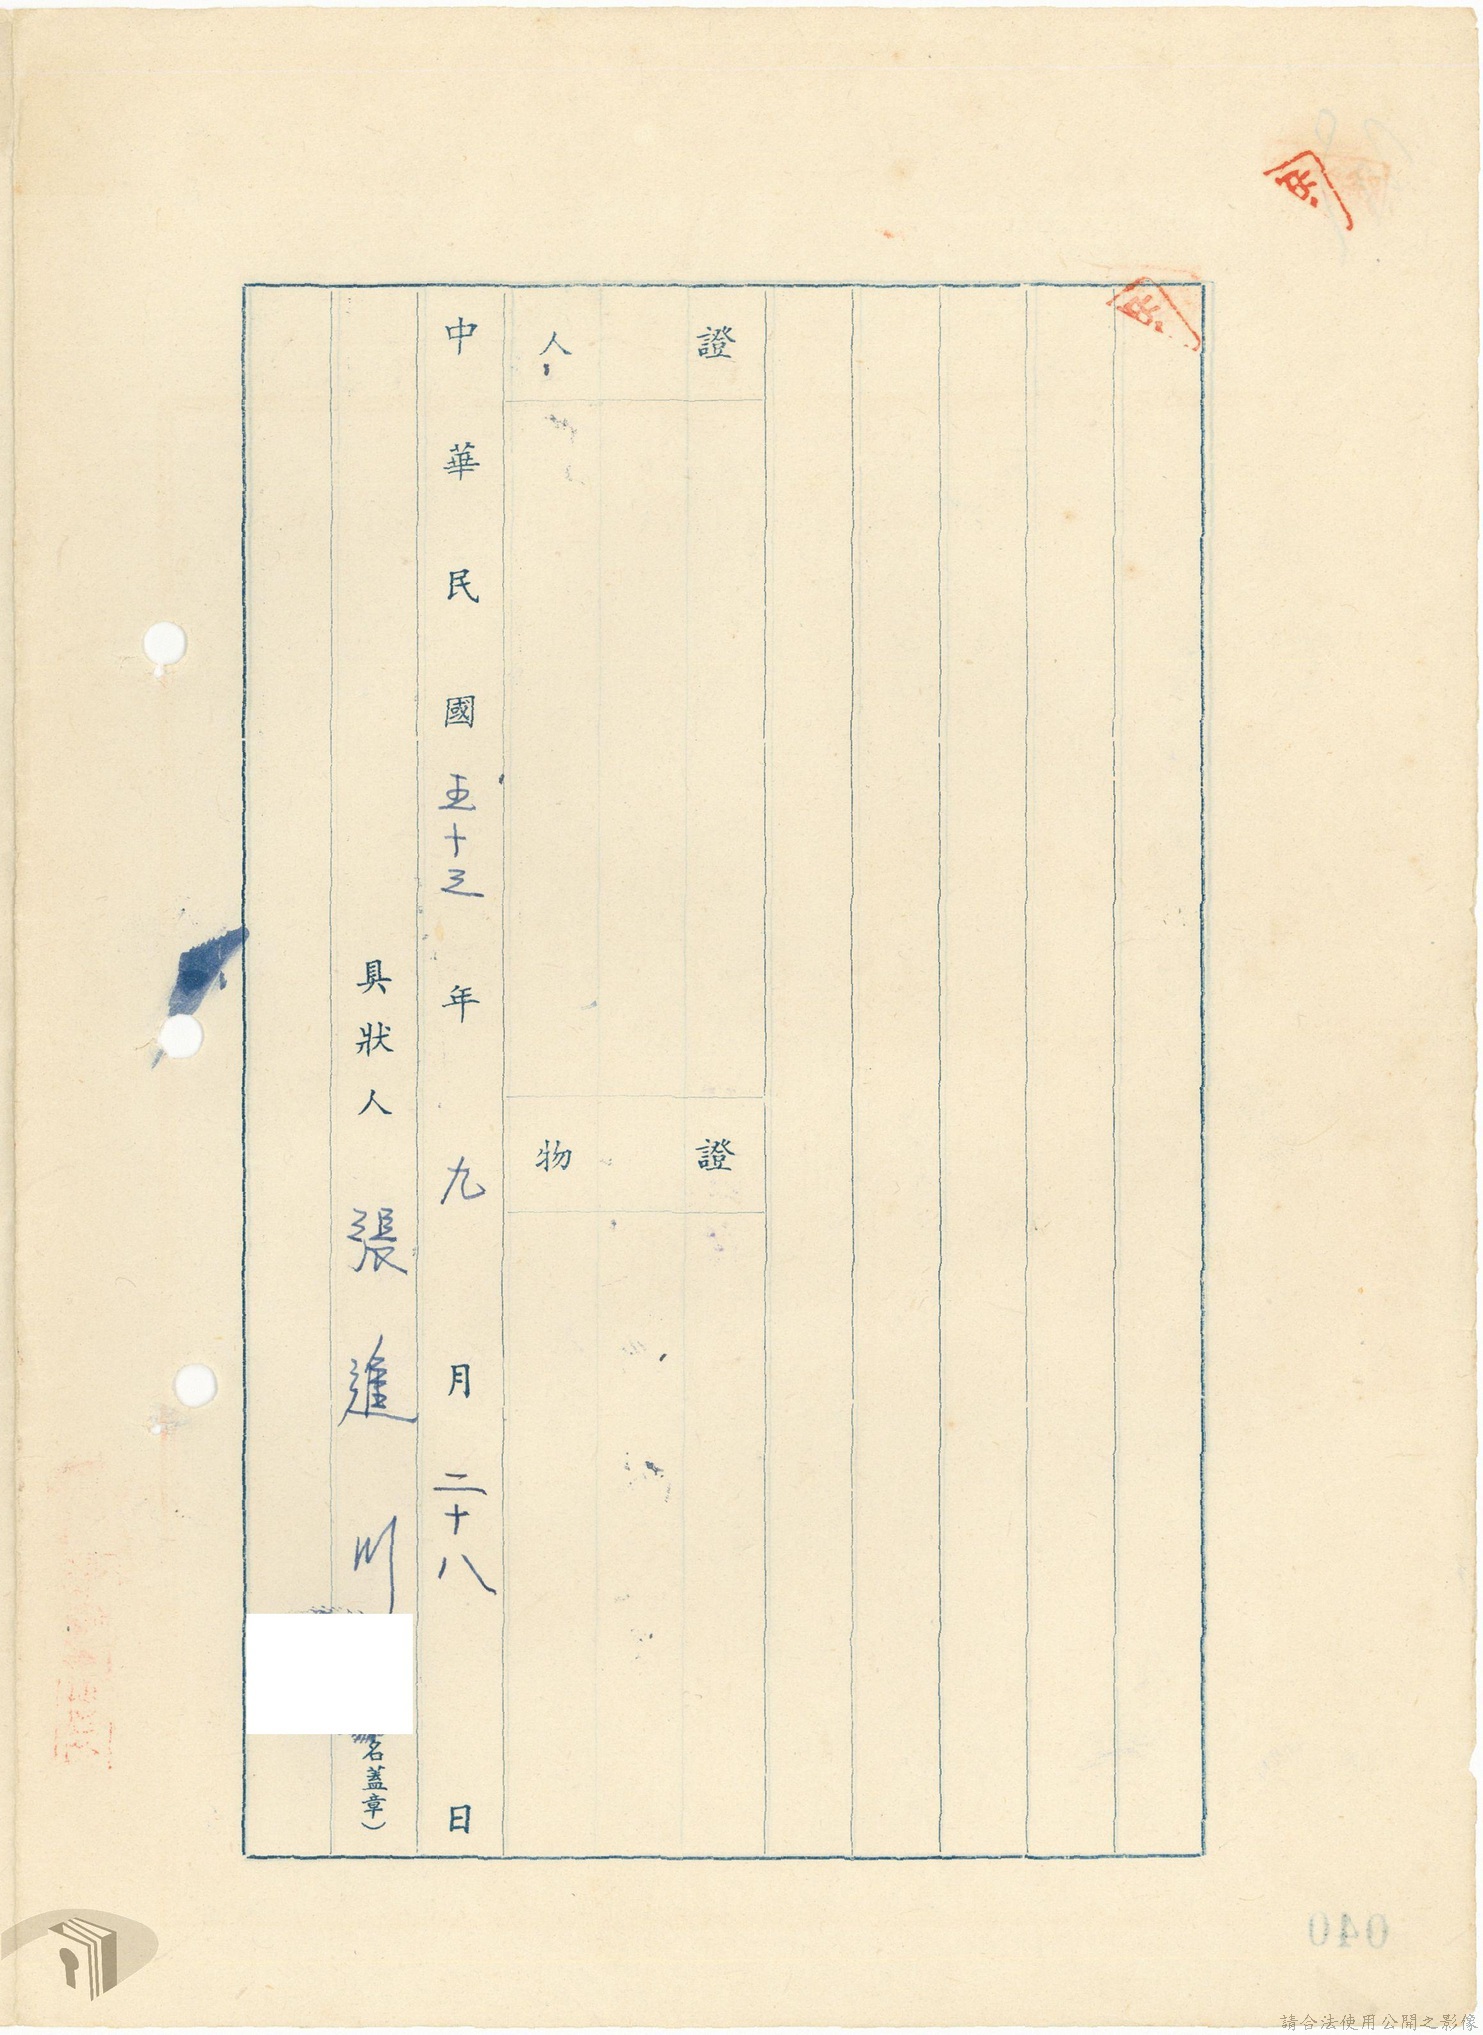 證人
證物
中華民國五十三年九月二十八日
具狀人 張進川
名蓋章）
040
請合法使用公開之影像